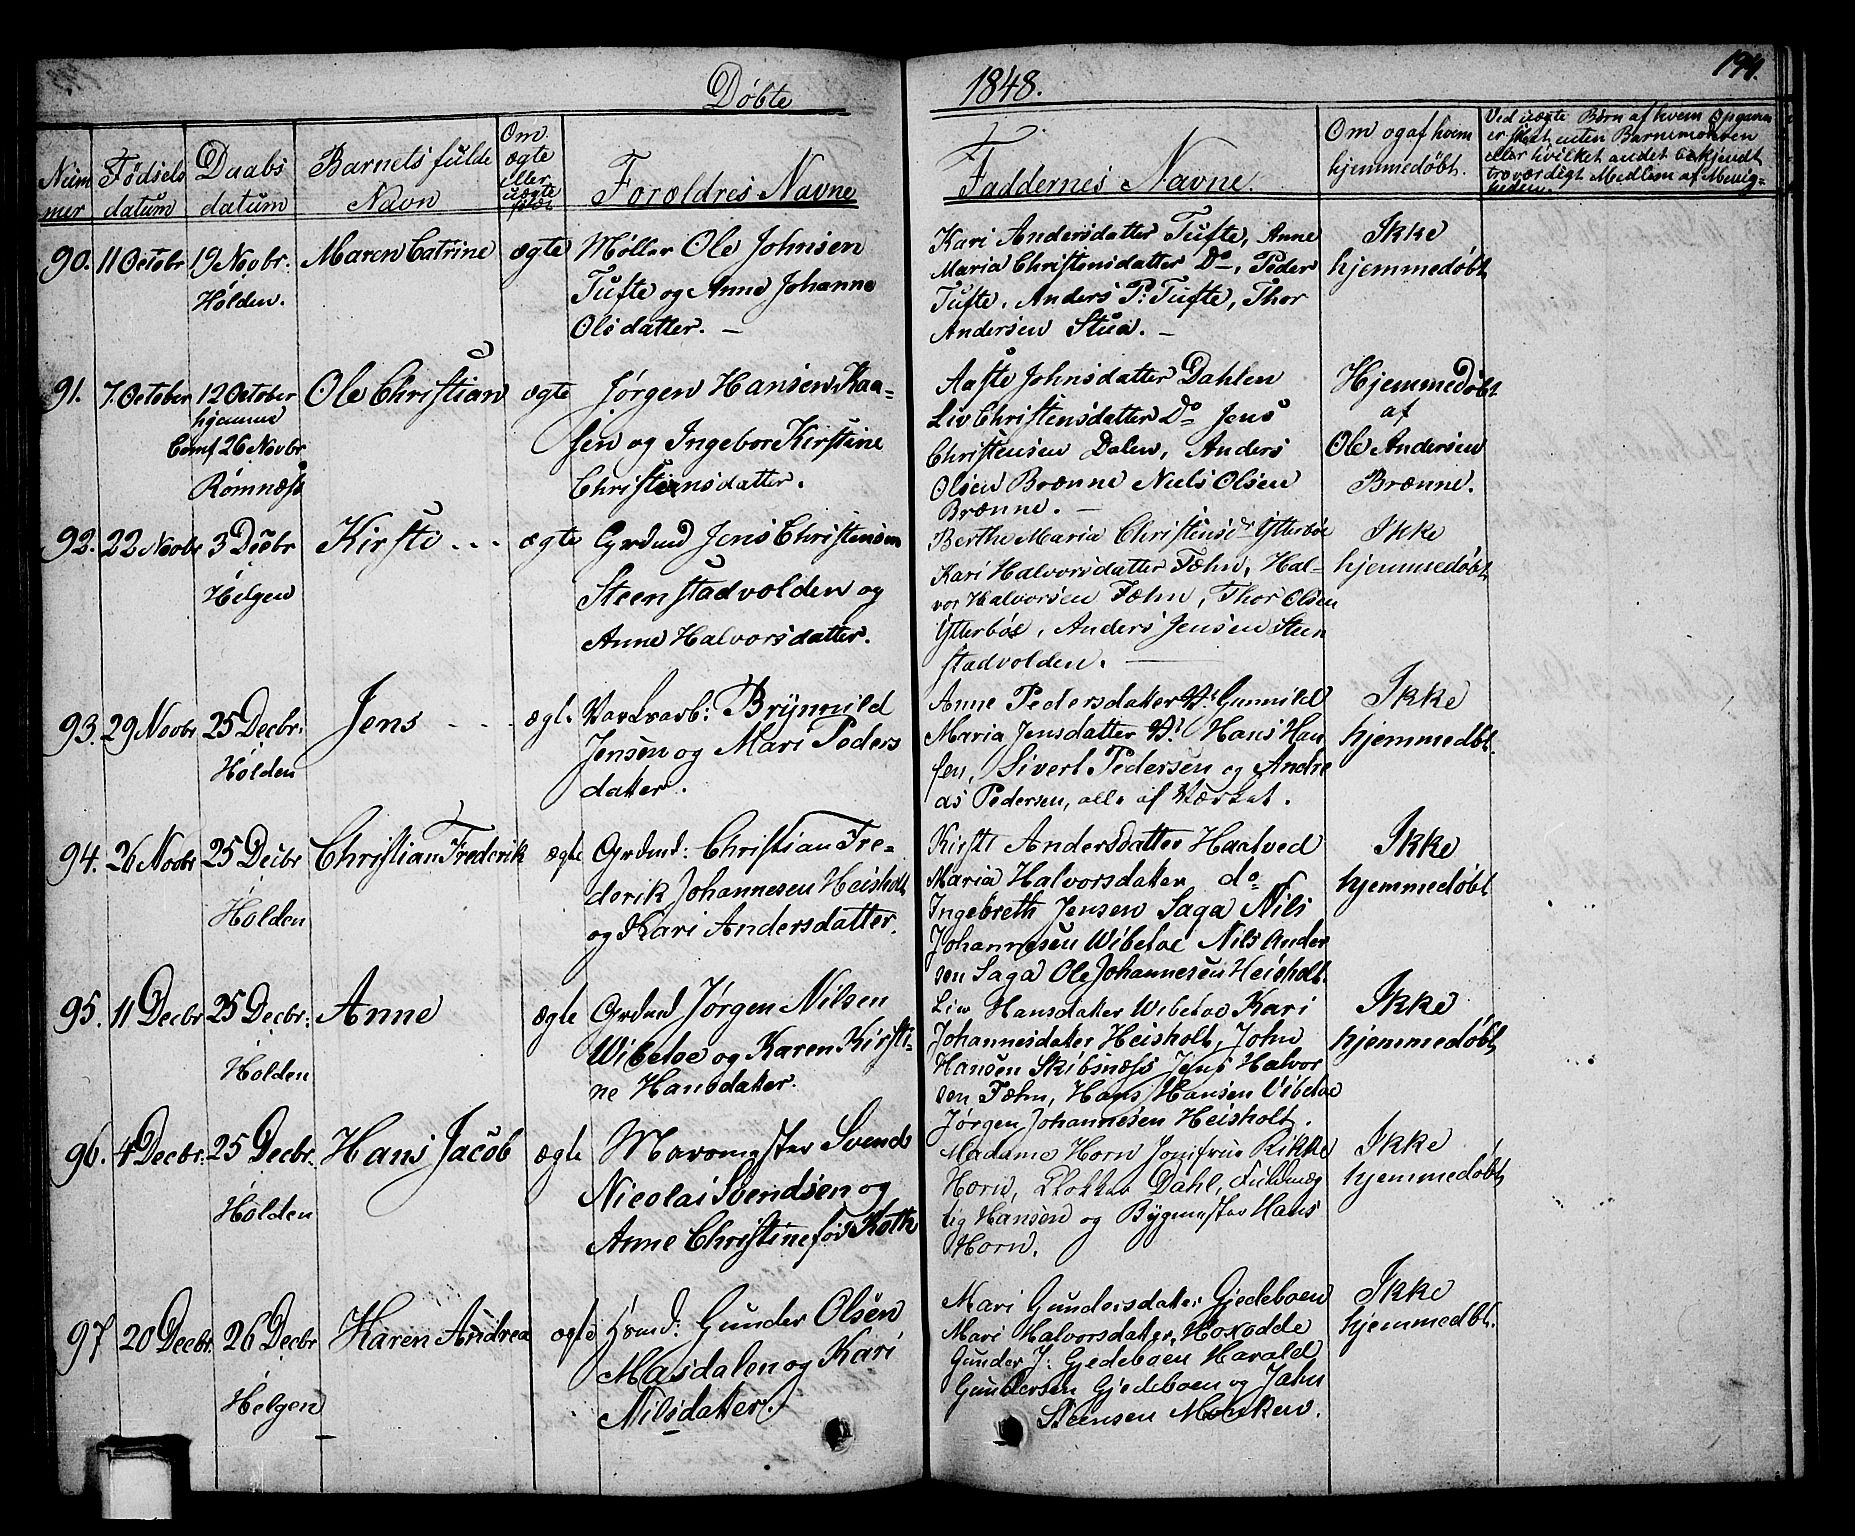 Døbte
1848.
194.
Num
mer
Fødsels
datum
Daabs
datum
Barnets fulde
Navn
Om
ægte
eller
uægte
Forældres Navne
Faddernes Navne.
Om og af hvem
hjemmedøbt.
Ved uægte Børn af hvem Opgaven
er skeet, enten Barnemoderen
eller hvilket andet bekjendt
troværdigt Medlem af Menig-
heden.
90. 11 Octobr 19 Novbr: Maren Catrine ægte Møller Ole Johnsen
Holden.
Tufte og Anne Johanne
Olsdatter. —
Kari Andersdatter Tufte, Anne
Maria Christensdatter Do, Peder
Tufte, Anders P: Tufte, Thor
Andersen Stua. —
Ikke
hjemmedøbt
91. 7 October 12 October Ole Christian ægte Jørgen Hansen Kaa-
hjemme
Conf 26 Novbr
Romnæss
sen og Ingebor Kirstine
Christiansdatter.
Aaste Johnsdatter Dahlen
Liv Christensdatter Do Jens
Christensen Dalen, Anders
Olsen Brænne Niels Olsen
Brænne. —
Hjemmedøbt
af
Ole Andersen
Brænne.
92. 22 Novbr 3 Decbr Kirste ægte Grdmd Jens Christensen
Helgen
Steenstadvolden og
Anne Halvorsdatter.
Berthe Maria Christensdr Ytterbøe
Kari Halvorsdatter Fæhn, Hal-
vor Halvorsen Fæhn, Thor Olsen
Ytterbøe, Anders Jensen Steen
stadvolden. —
Ikke
hjemmedøbt
93. 29 Novbr 25 Decbr: Jens ægte Værksarb: Brynnild
Holden
Jensen og Mari Peders
datter.
Anne Pedersdatter V. Gunnild
Maria Jensdatter V. Hans Han
sen, Sivert Pedersen og Andre
as Pedersen, alle af Værket.
Ikke
hjemmedøbt.
94. 26 Novbr 25 Decbr Christian Frederik ægte Grdmd: Christian Fre-
Holden
derik Johannesen Heisholt
og Kari Andersdatter.
Kirsti Andersdatter Haatved
Maria Halvorsdatter do
Ingebreth Jensen Saga Nils
Johannesen Wibetoe Nils Ander
sen Saga Ole Johannesen Heisholt.
Ikke
hjemmedøbt
95. 11 Decbr 25 Decbr: Anne ægte Grdmd Jørgen Nilsen
Holden
Wibetoe og Karen Kirsti-
ne Hansdatter.
Liv Hansdatter Wibetoe Kari
Johannesdatter Heisholt, John
Hansen Skibsnæss Jens Halvor
sen Fæhn, Hans Hansen Vibetoe
Jørgen Johannesen Heisholt.
Ikke
hjemmedøbt
96. 4 Decbr: 25 Decbr. Hans Jacob ægte Marsmester Svend
Holden
Nicolai Svendsen og
Anne Christine fød Koth
Madame Horn Jomfrue Rikke
Horn, Dokter Dahl, Fuldmæg
tig Hansen og Bygmester Hans
Horn.
Ikke
hjemmedøbt
97 20 Decbr. 26 Decbr Karen Andrea ægte Hsmd: Gunder Olsen
Helgen
Masdalen og Kari
Nilsdatter.
Mari Gundersdatter Gjedeboen
Mari Halvorsdatter, Hoxodde
Gunder J: Gjedeboen Harald
Gundersen Gjedeboen og Jahn
Steensen Moeken.
Ikke
hjemmedøbt.